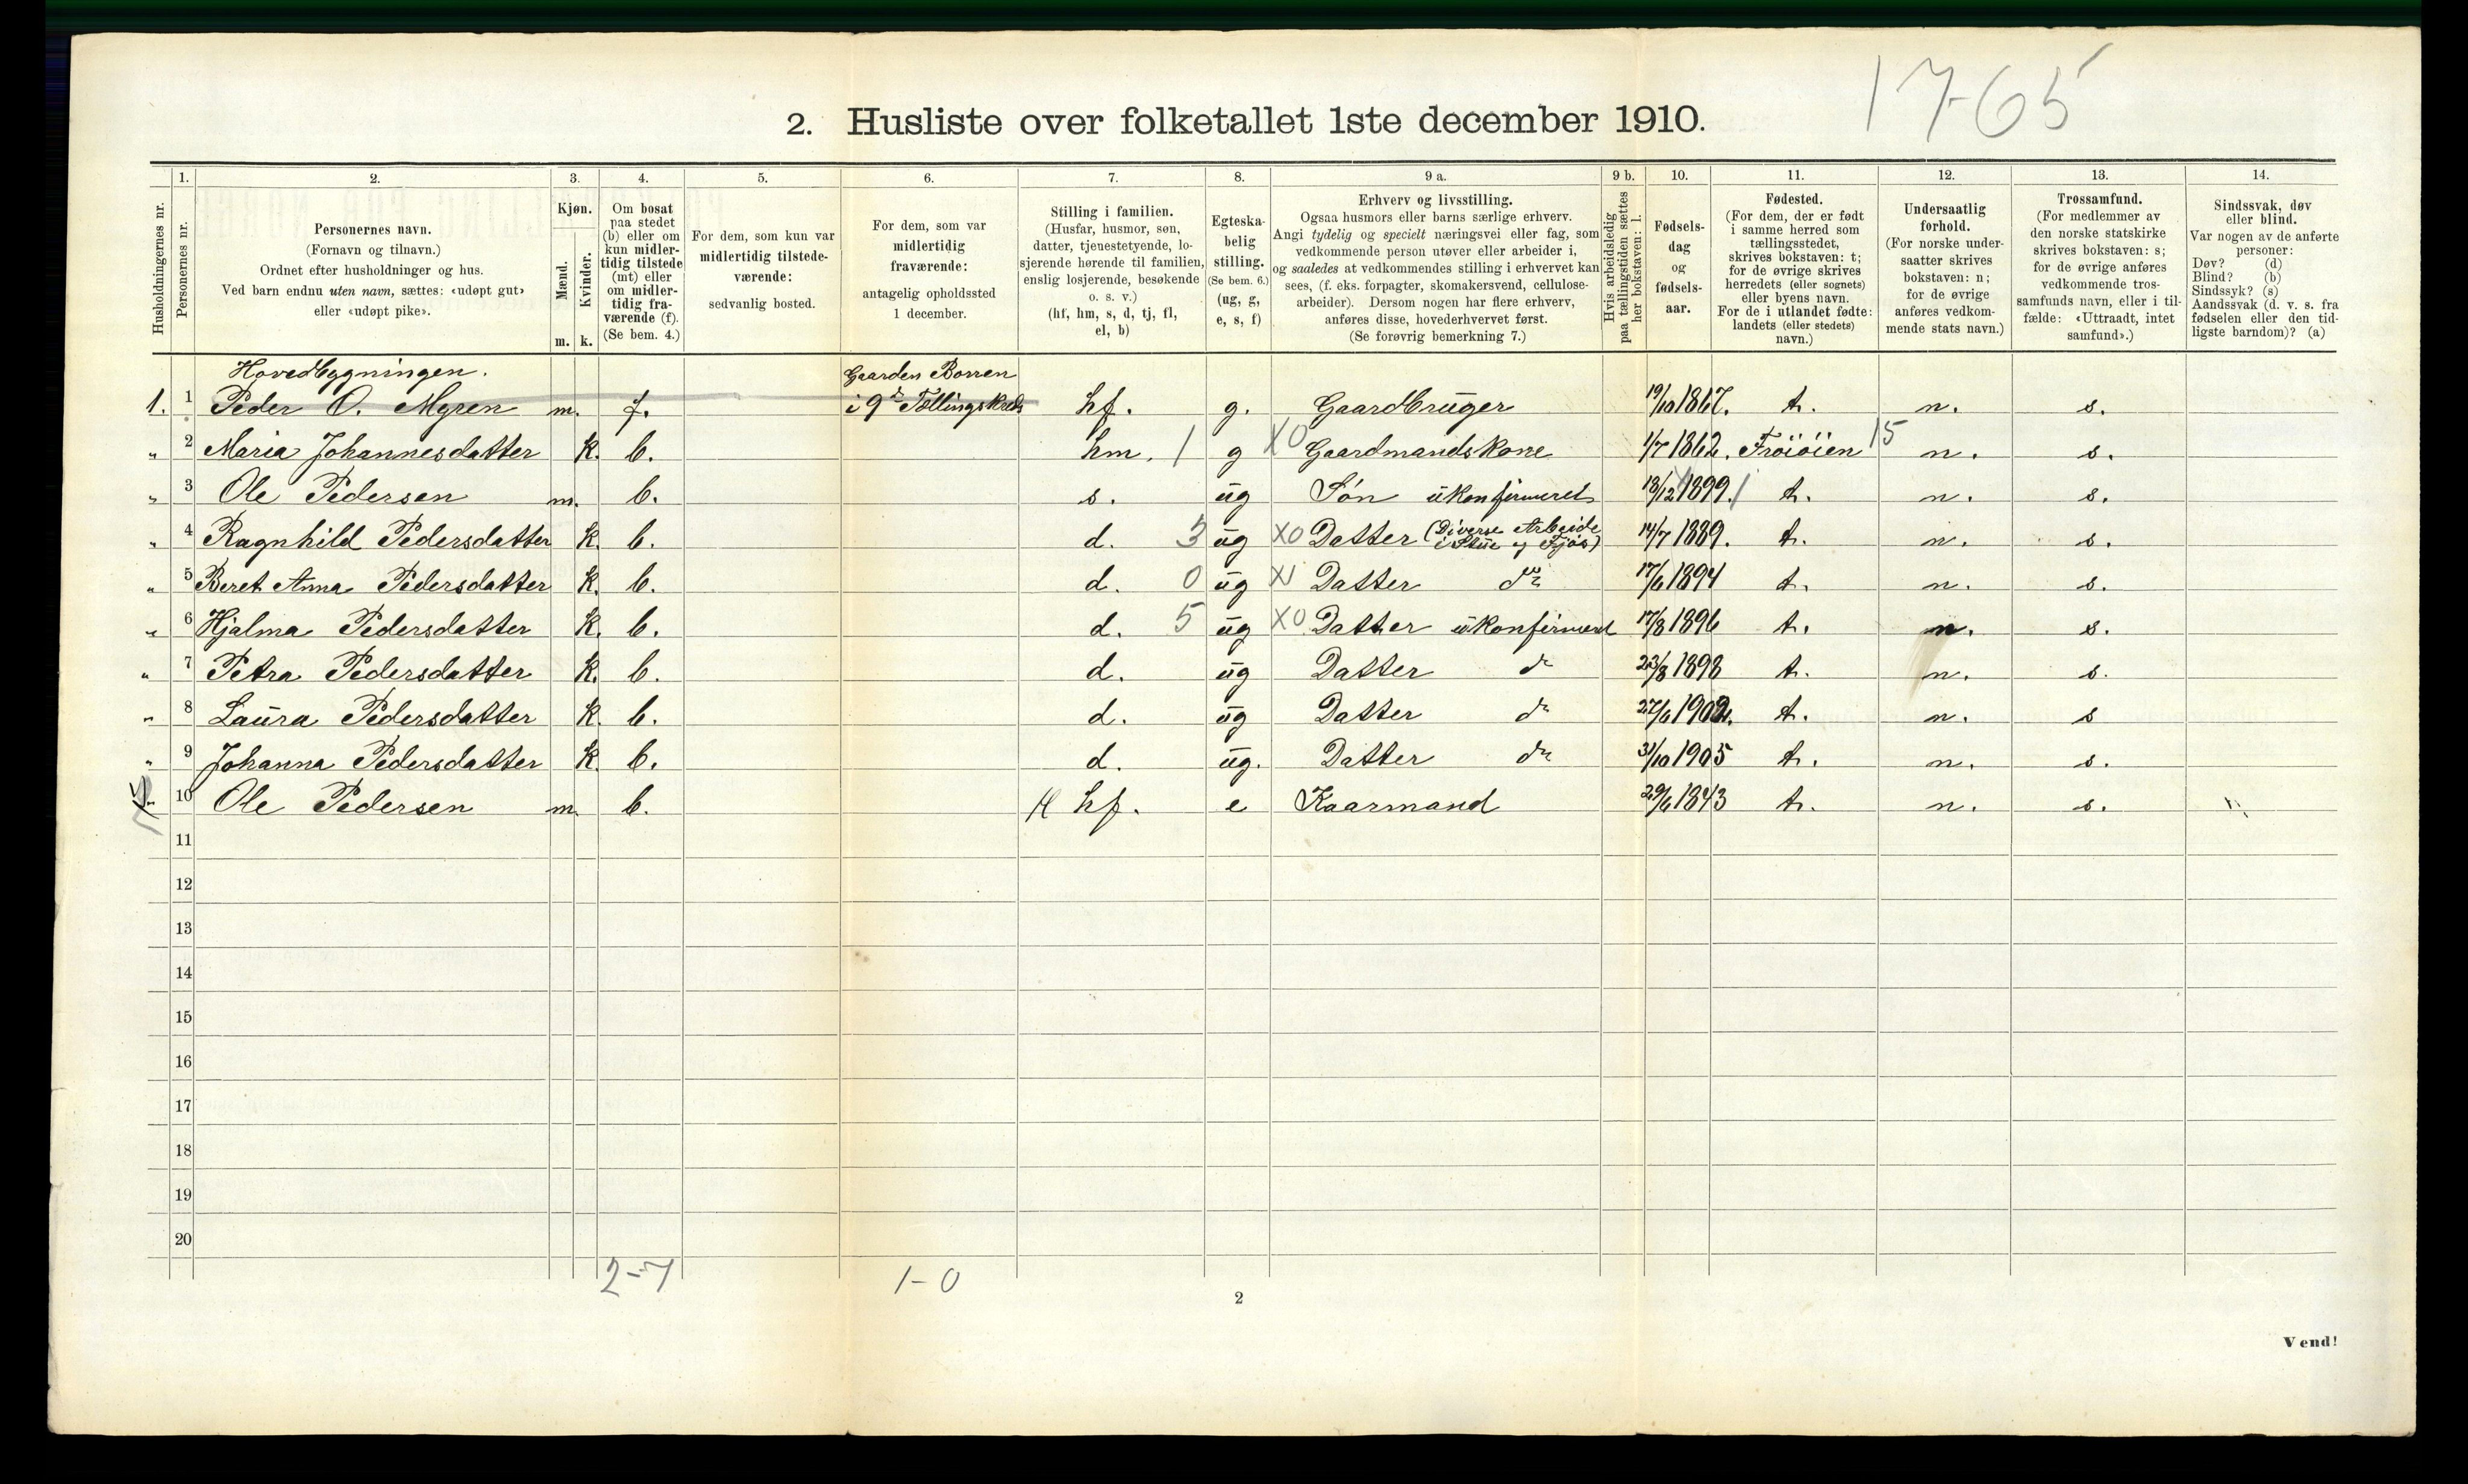 17-65
2. Husliste over folketallet 1ste december 1910.
Husholdningernes nr.
1.
Personernes nr.
2.
Personernes navn.
(Fornavn og tilnavn.)
Ordnet efter husholdninger og hus.
Ved barn endnu uten navn, sættes: «udøpt gut»
eller «udøpt pike».
3.
Kjøn.
Mænd.
Kvinder.
m. k.
4.
Om bosat
paa stedet
(b) eller om
kun midler-
tidig tilstede
(mt) eller
om midler-
tidig fra-
værende (f).
(Se bem. 4.)
5.
For dem, som kun var
midlertidig tilstede-
værende:
sedvanlig bosted.
6.
For dem, som var
midlertidig
fraværende:
antagelig opholdssted
1 december.
7.
Stilling i familien.
(Husfar, husmor, søn,
datter, tjenestetyende, lo-
sjerende hørende til familien,
enslig losjerende, besøkende
o. s. v.)
(hf, hm, s, d, tj, fl,
el, b)
8.
Egteska-
belig
stilling.
(Se bem. 6.)
(ug, g,
e, s, f)
9 a.
Erhverv og livsstilling.
Ogsaa husmors eller barns særlige erhverv.
Angi tydelig og specielt næringsvei eller fag, som
vedkommende person utøver eller arbeider i,
og saaledes at vedkommendes stilling i erhvervet kan
sees, (f. eks. forpagter, skomakersvend, cellulose-
arbeider). Dersom nogen har flere erhverv,
anføres disse, hovederhvervet først.
(Se forøvrig bemerkning 7.)
9 b.
Hvis arbeidsledig
paa tællingstiden sættes
her bokstaven: l.
10.
Fødsels-
dag
og
fødsels-
aar.
11.
Fødested.
(For dem, der er født
i samme herred som
tællingsstedet,
skrives bokstaven: t;
for de øvrige skrives
herredets (eller sognets)
eller byens navn.
For de i utlandet fødte:
landets (eller stedets)
navn.)
12.
Undersaatlig
forhold.
(For norske under-
saatter skrives
bokstaven: n;
for de øvrige
anføres vedkom-
mende stats navn.)
13.
Trossamfund.
(For medlemmer av
den norske statskirke
skrives bokstaven: s;
for de øvrige anføres
vedkommende tros-
samfunds navn, eller i til-
fælde: «Uttraadt, intet
samfund».)
14.
Sindssvak, døv
eller blind.
Var nogen av de anførte
personer:
Døv? (d)
Blind? (b)
Sindssyk? (s)
Aandssvak (d. v. s. fra
fødselen eller den tid-
ligste barndom)? (a)
Hovedbygningen. Gaarden Borren
1. 1 Peder O. Myren m. f. i 9de Tællingskreds hf. g. Gaardbruger 19/10 1867. t. n. s.
" 2 Maria Johannesdatter k. b. hm. 1 g XO Gaardmandskone 1/7 1862. Frøiøien 15 n. s.
" 3 Ole Pedersen m. b. s. ug Søn ukonfirmeret 18/12 1899. t. n. s.
" 4 Ragnhild Pedersdatter k. b. d. 3 ug XO Datter (Diverse Arbeide i Stue og Fjøs) 14/7 1889. t. n. s.
" 5 Beret Anna Pedersdatter k. b. d. 0 ug Datter do 17/6 1894 t. n. s.
" 6 Hjalma Pedersdatter k. b. d. 5 ug XO Datter ukonfirmeret 17/8 1896 t. n. s.
" 7 Petra Pedersdatter k. b. d. ug Datter do 23/8 1898 t. n. s.
" 8 Laura Pedersdatter k. b. d. ug Datter do 27/6 1902. t. n. s
" 9 Johanna Pedersdatter k. b. d. ug. Datter do 31/10 1905 t. n. s.
10 Ole Pedersen m. b. hf. e Kaarmand 29/6 1843 t. n. s.
11
12
13
14
15
16
17
18
19
20
2-7 1-0
2
Vend!